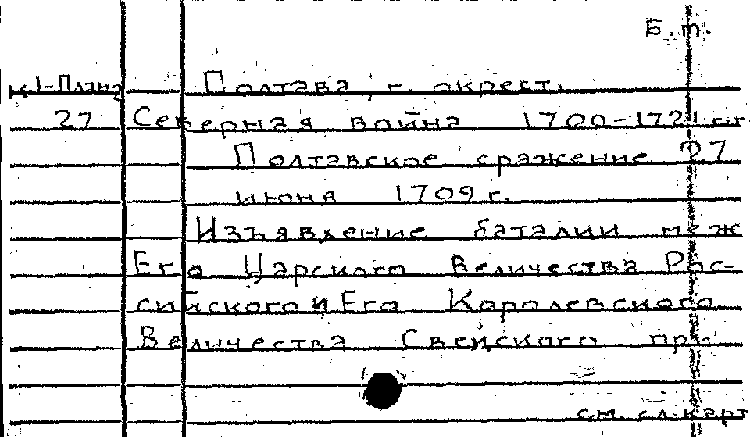 Б.п.
к1-Планд Полтава, г. окрест.
27 Северная война 1700-1721 гг
Полтавское сражение 27
июня 1709 г.
Изъявление баталии меж
Его Царского Величества Рос-
сийского и Его Королевского
Величества Свейского при
см. сл. карт